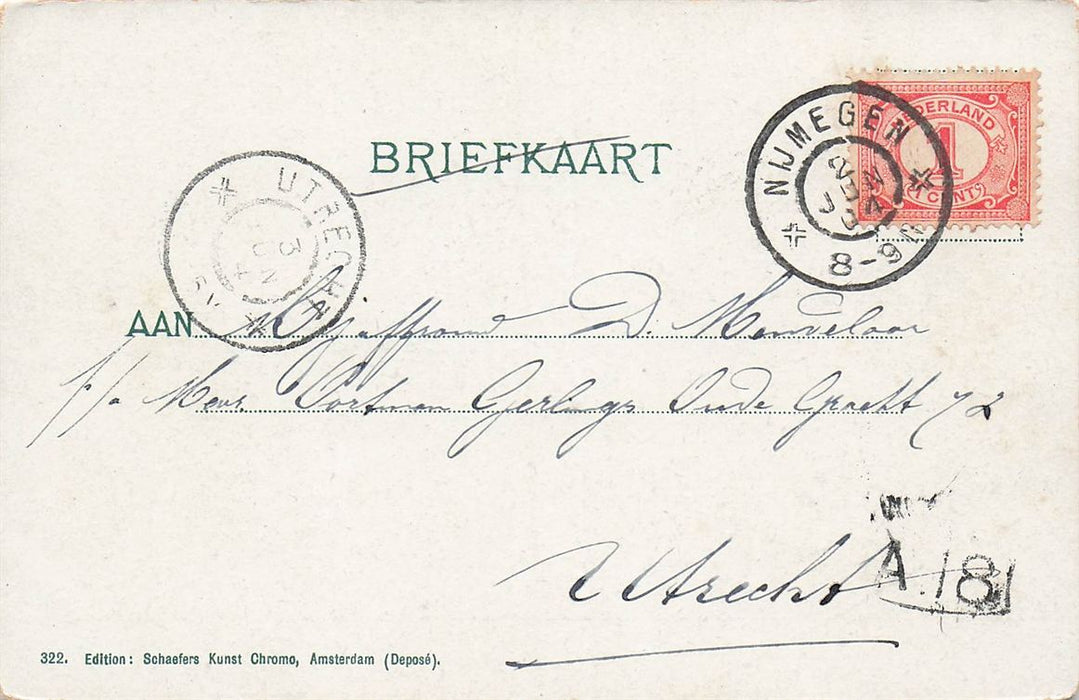 BRIEFKAART
NEDERLAND
1
CENT
NIJMEGEN
8-9N
UTRECHT
3
AAN Mejuffrouw D. Mendelaar
p/a Mevr. Oortman Gerlings Oude Gracht 72
Utrecht
A.18
322. Edition: Schaefers Kunst Chromo, Amsterdam (Deposé).